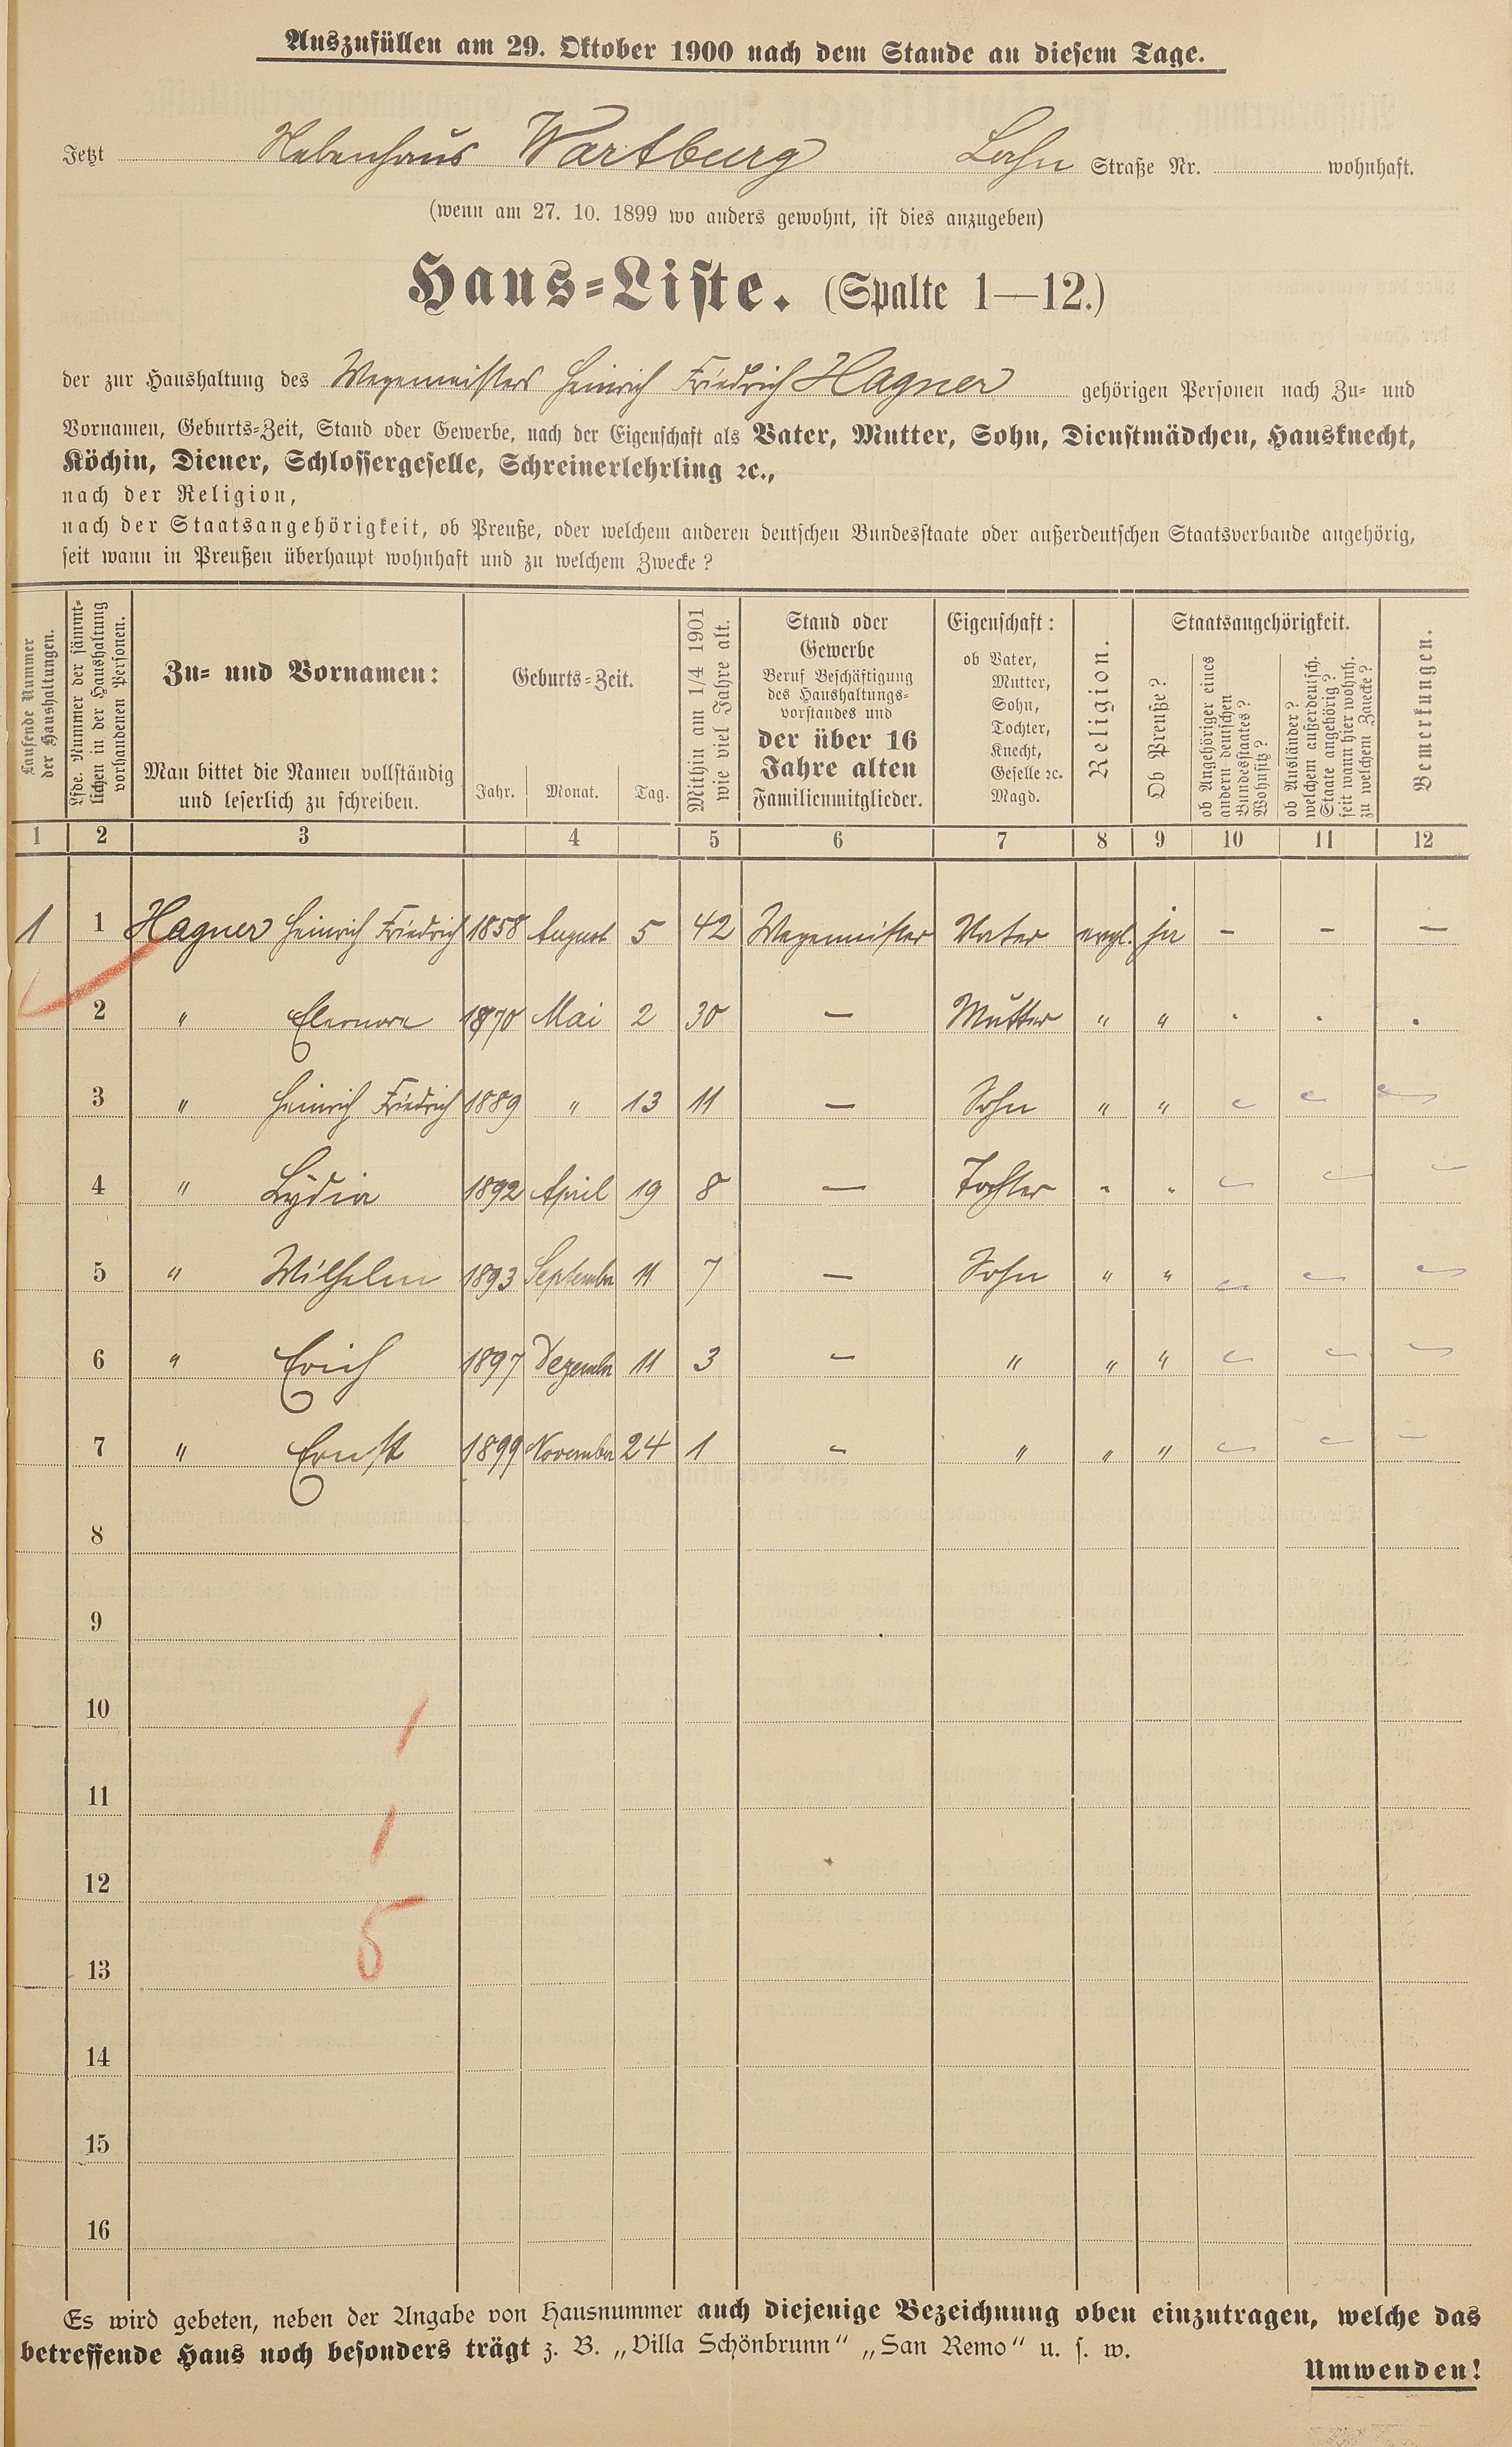 Auszufüllen am 29. Oktober 1900 nach dem Stande an diesem Tage.
Jetzt Nebenhaus Wartburg Lahn Straße Nr. wohnhaft.
(wenn am 27. 10. 1899 wo anders gewohnt, ist dies anzugeben)
Haus-Liste. (Spalte 1—12.)
der zur Haushaltung des Wegemeisters Heinrich Friedrich Hagner gehörigen Personen nach Zu- und
Vornamen, Geburts-Zeit, Stand oder Gewerbe, nach der Eigenschaft als Vater, Mutter, Sohn, Dienstmädchen, Hausknecht,
Köchin, Diener, Schlossergeselle, Schreinerlehrling ꝛc.,
nach der Religion,
nach der Staatsangehörigkeit, ob Preuße, oder welchem anderen deutschen Bundesstaate oder außerdeutschen Staatsverbande angehörig,
seit wann in Preußen überhaupt wohnhaft und zu welchem Zwecke?
Laufende Nummer
der Haushaltungen.
Lfde. Nummer der sämmt-
lichen in der Haushaltung
vorhandenen Personen.
Zu- und Vornamen:
Man bittet die Namen vollständig
und leserlich zu schreiben.
Geburts-Zeit.
Jahr. Monat. Tag.
Mithin am 1/4 1901
wie viel Jahre alt.
Stand oder
Gewerbe
Beruf Beschäftigung
des Haushaltungs-
vorstandes und
der über 16
Jahre alten
Familienmitglieder.
Eigenschaft:
ob Vater,
Mutter,
Sohn,
Tochter,
Knecht,
Geselle ꝛc.
Magd.
Religion.
Staatsangehörigkeit.
Ob Preuße?
ob Angehöriger eines
andern deutschen
Bundesstaates?
Wohnsitz?
ob Ausländer?
welchem außerdeutsch.
Staate angehörig?
seit wann hier wohnh.
zu welchem Zwecke?
Bemerkungen.
1 2 3 4 5 6 7 8 9 10 11 12
1 1 Hagner Heinrich Friedrich 1858 August 5 42 Wegemeister Vater evgl. ja — — —
2 " Eleonore 1870 Mai 2 30 — Mutter " " . . .
3 " Heinrich Friedrich 1889 " 13 11 — Sohn " " — — —
4 " Lydia 1892 April 19 8 — Tochter " " — — —
5 " Wilhelm 1893 September 11 7 — Sohn " " — — —
6 " Erich 1897 Dezember 11 3 — " " " — — —
7 " Ernst 1899 November 24 1 — " " " — — —
8
9
10
1
11
1
12
5
13
14
15
16
Es wird gebeten, neben der Angabe von Hausnummer auch diejenige Bezeichnung oben einzutragen, welche das
betreffende Haus noch besonders trägt z. B. „Villa Schönbrunn“ „San Remo“ u. s. w.
Umwenden!